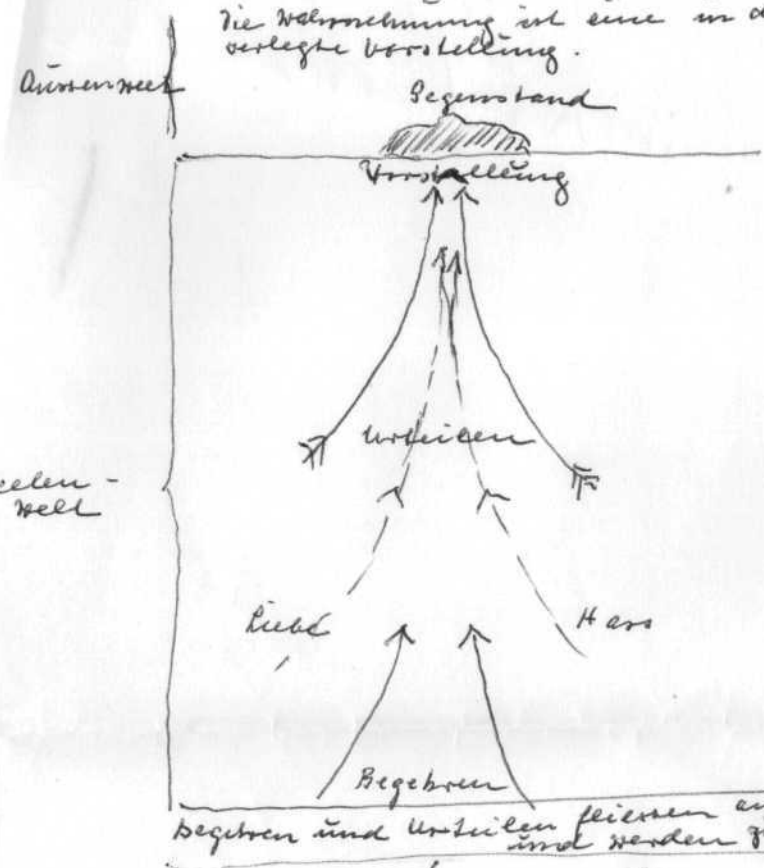 Die Wahrnehmung ist eine in d
verlegte Vorstellung.
Aussenwelt
Gegenstand
Vorstellung
Urteilen
eelen-
welt
Liebe
Hass
Begehren
Begehren und Urteilen fliessen an
und werden z